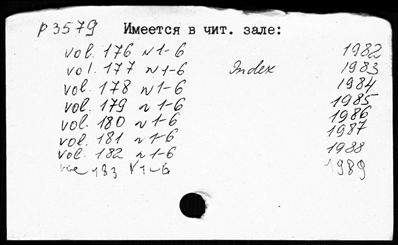 р3579 Имеется в чит. зале:
vol. 176 N 1-6 1982
vol. 177 N 1-6 Index 1983
vol. 178 N 1-6 1984
vol. 179 N 1-6 1985
vol. 180 N 1-6 1986
vol. 181 N 1-6 1987
vol. 182 N 1-6 1988
vol 183 N 1-6 1989